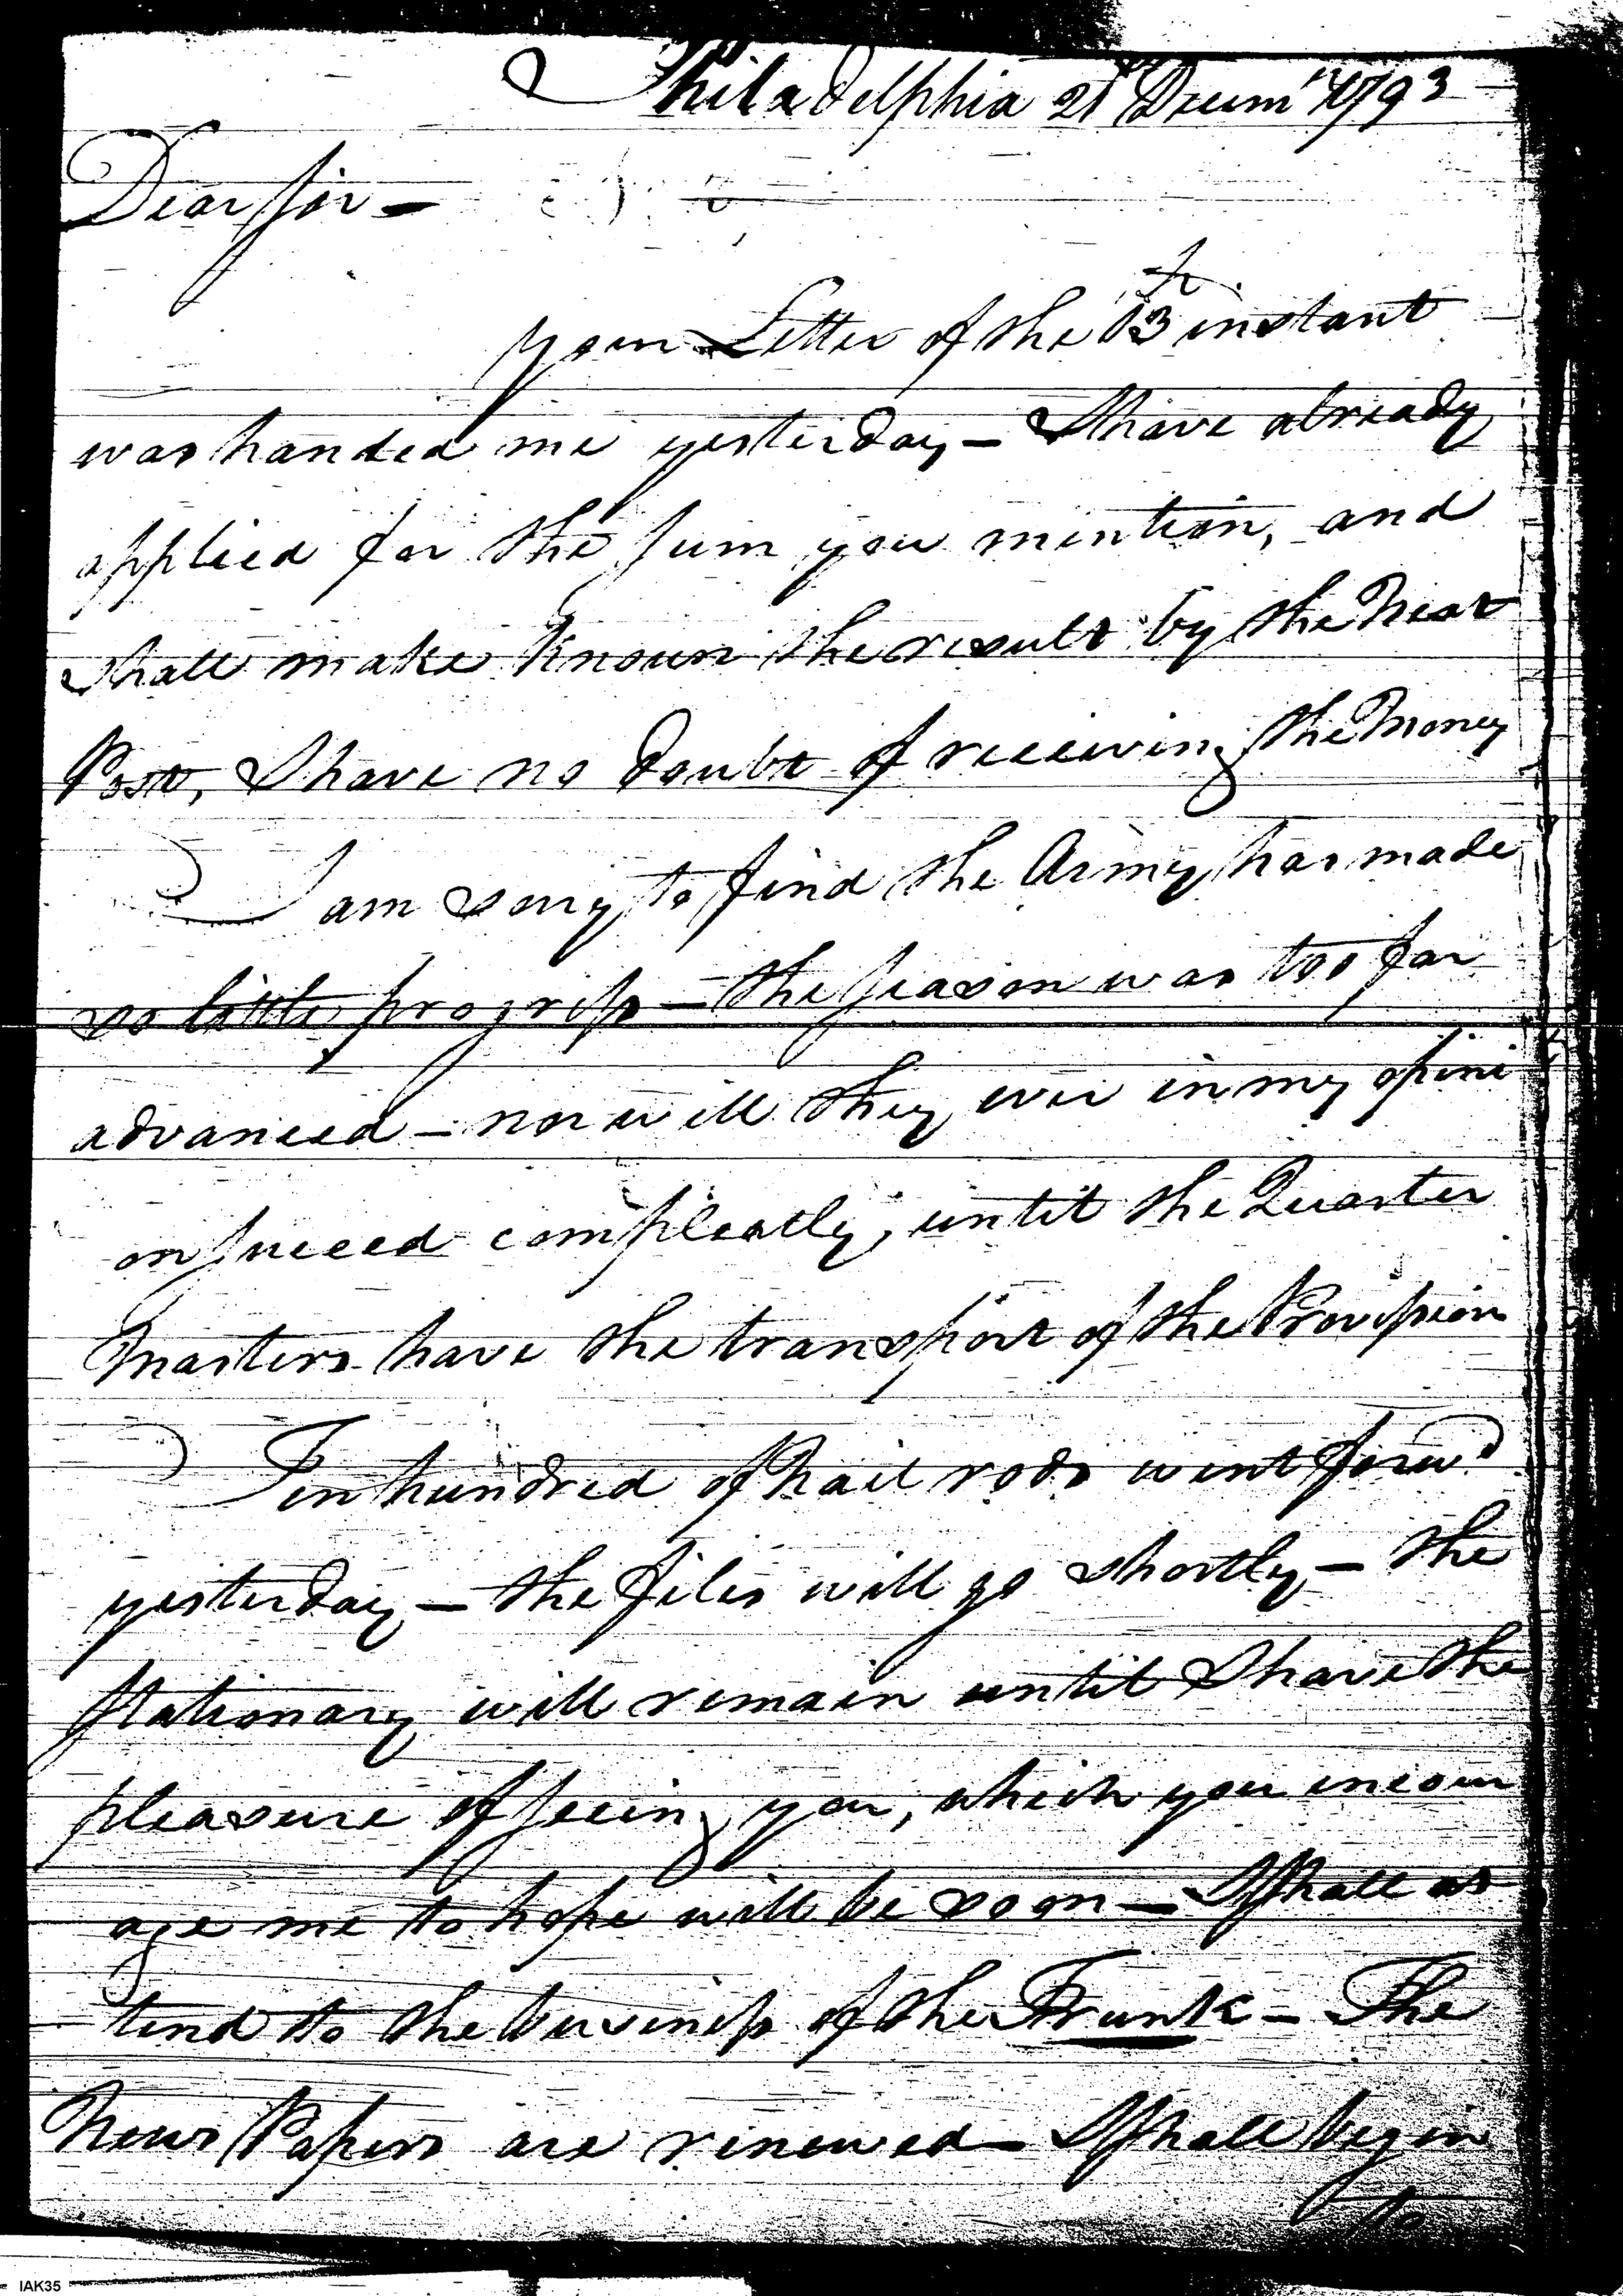 Philadelphia 21st Decemr 1793
Dear Sir —
your Letter of the 13th instant
was handed me yesterday — I have already
applied for the sum you mention, and
shall make known the result by the Next
Post, I have no doubt of receiving the Money
I am sorry to find the Army has made
so little progress — the season was too far
advanced — nor will they ever in my opini
on succeed compleatly, until the Quarter
Masters have the transport of the Provision
Ten hundred of Nail rods went forwd
yesterday — the files will go shortly — the
Stationary will remain until I have the
pleasure of seeing you, which you encour
age me to hope will be soon — I shall at
tend to the business of the Trunk — The
News Papers are renewed — I shall begin
to
IAK35